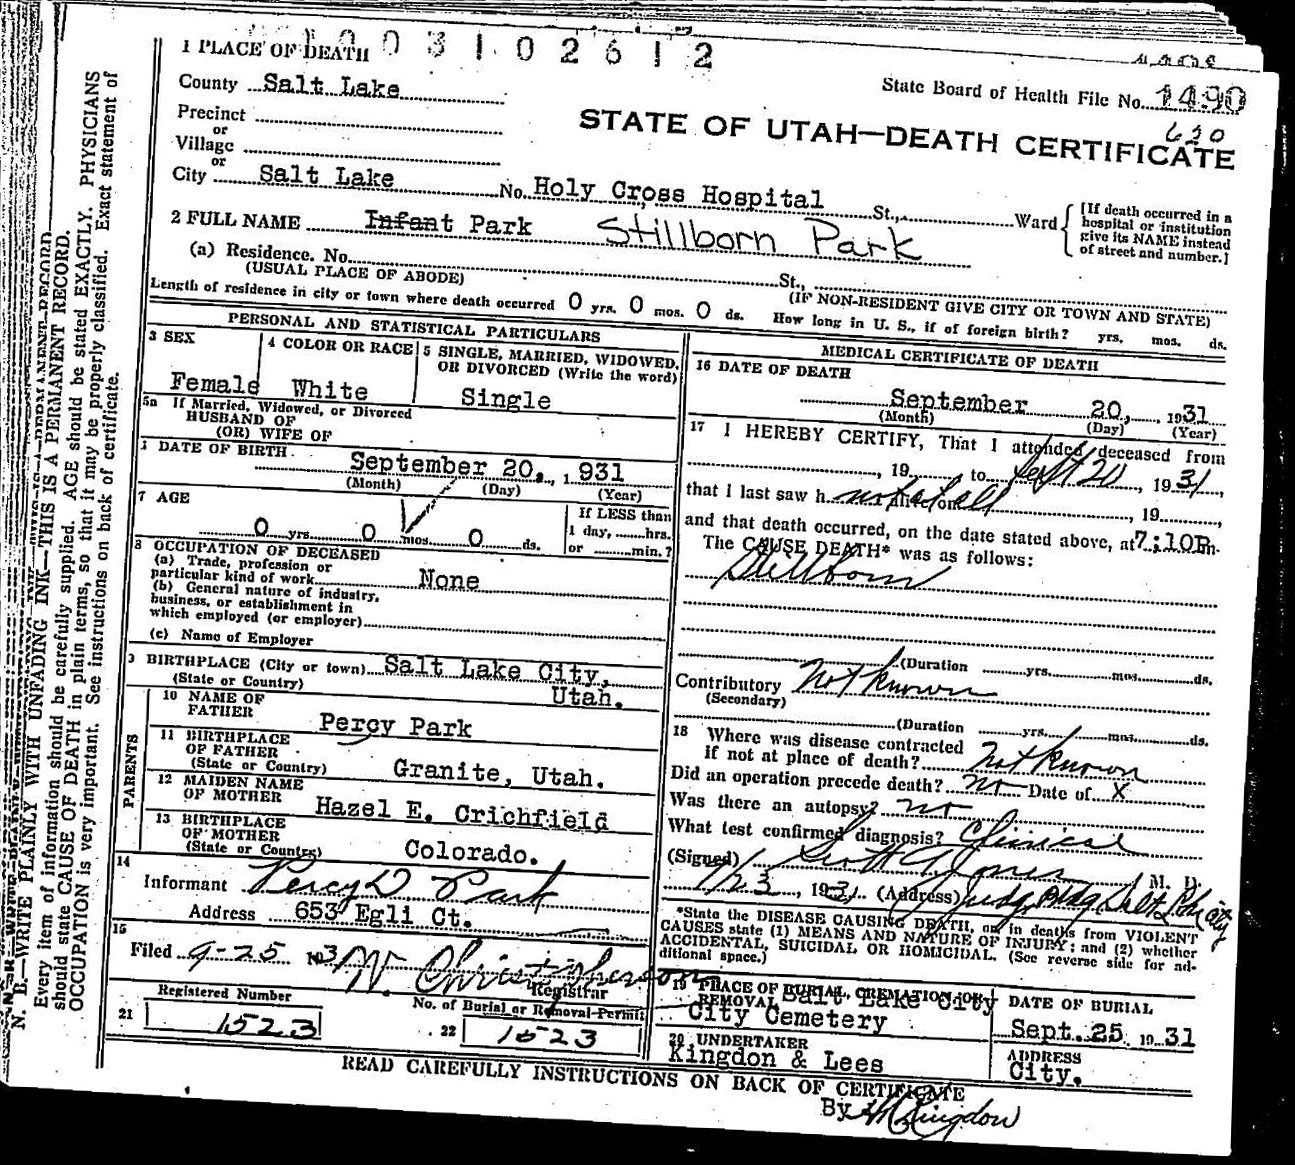 1 PLACE OF DEATH
1003102612
County Salt Lake
State Board of Health File No. 1490
620
Precinct
or
Village
or
City Salt Lake No. Holy Cross Hospital St., Ward
STATE OF UTAH—DEATH CERTIFICATE
[If death occurred in a
hospital or institution
give its NAME instead
of street and number.]
2 FULL NAME Infant Park Stillborn Park
(a) Residence. No. St.,
(USUAL PLACE OF ABODE) (IF NON-RESIDENT GIVE CITY OR TOWN AND STATE)
Length of residence in city or town where death occurred 0 yrs. 0 mos. 0 ds. How long in U. S., if of foreign birth? yrs. mos. ds.
PERSONAL AND STATISTICAL PARTICULARS
3 SEX
Female
4 COLOR OR RACE
White
5 SINGLE, MARRIED, WIDOWED,
OR DIVORCED (Write the word)
Single
5a If Married, Widowed, or Divorced
HUSBAND OF
(OR) WIFE OF
DATE OF BIRTH
September 20, 1931
(Month) (Day) (Year)
7 AGE
0 yrs. 0 mos. 0 ds.
If LESS than
1 day, hrs.
or min.?
8 OCCUPATION OF DECEASED
(a) Trade, profession or
particular kind of work None
(b) General nature of industry,
business, or establishment in
which employed (or employer)
(c) Name of Employer
9 BIRTHPLACE (City or town) Salt Lake City,
(State or Country) Utah.
PARENTS
10 NAME OF
FATHER Percy Park
11 BIRTHPLACE
OF FATHER
(State or Country) Granite, Utah.
12 MAIDEN NAME
OF MOTHER Hazel E. Crichfield
13 BIRTHPLACE
OF MOTHER
(State or Country) Colorado.
14
Informant Percy D. Park
Address 653 Egli Ct.
15
Filed 9-25 1931 W. Christopherson
Registrar
Registered Number
21 1523
No. of Burial or Removal Permit
22 1523
MEDICAL CERTIFICATE OF DEATH
16 DATE OF DEATH
September 20, 1931
(Month) (Day) (Year)
17 I HEREBY CERTIFY, That I attended deceased from
, 19 to Sept 20, 1931,
that I last saw h not at all alive on , 19
and that death occurred, on the date stated above, at 7:10P m.
The CAUSE DEATH* was as follows:
Stillborn
(Duration yrs. mos. ds.
Contributory Not known
(Secondary)
(Duration yrs. mos. ds.
18 Where was disease contracted
if not at place of death? Not known
Did an operation precede death? no Date of X
Was there an autopsy? no
What test confirmed diagnosis? Clinical
(Signed) Scott G. Jones M. D.
9/23, 1931 (Address) Judge Bldg Salt Lake City
*State the DISEASE CAUSING DEATH, or in deaths from VIOLENT
CAUSES state (1) MEANS AND NATURE OF INJURY; and (2) whether
ACCIDENTAL, SUICIDAL OR HOMICIDAL. (See reverse side for ad-
ditional space.)
19 PLACE OF BURIAL, CREMATION OR
REMOVAL Salt Lake City
City Cemetery
DATE OF BURIAL
Sept. 25 1931
20 UNDERTAKER
Kingdon & Lees
ADDRESS
City.
READ CAREFULLY INSTRUCTIONS ON BACK OF CERTIFICATE
By Kingdon
N. B.—WRITE PLAINLY WITH UNFADING INK—THIS IS A PERMANENT RECORD.
Every item of information should be carefully supplied. AGE should be stated EXACTLY. PHYSICIANS
should state CAUSE OF DEATH in plain terms, so that it may be properly classified. Exact statement of
OCCUPATION is very important. See instructions on back of certificate.